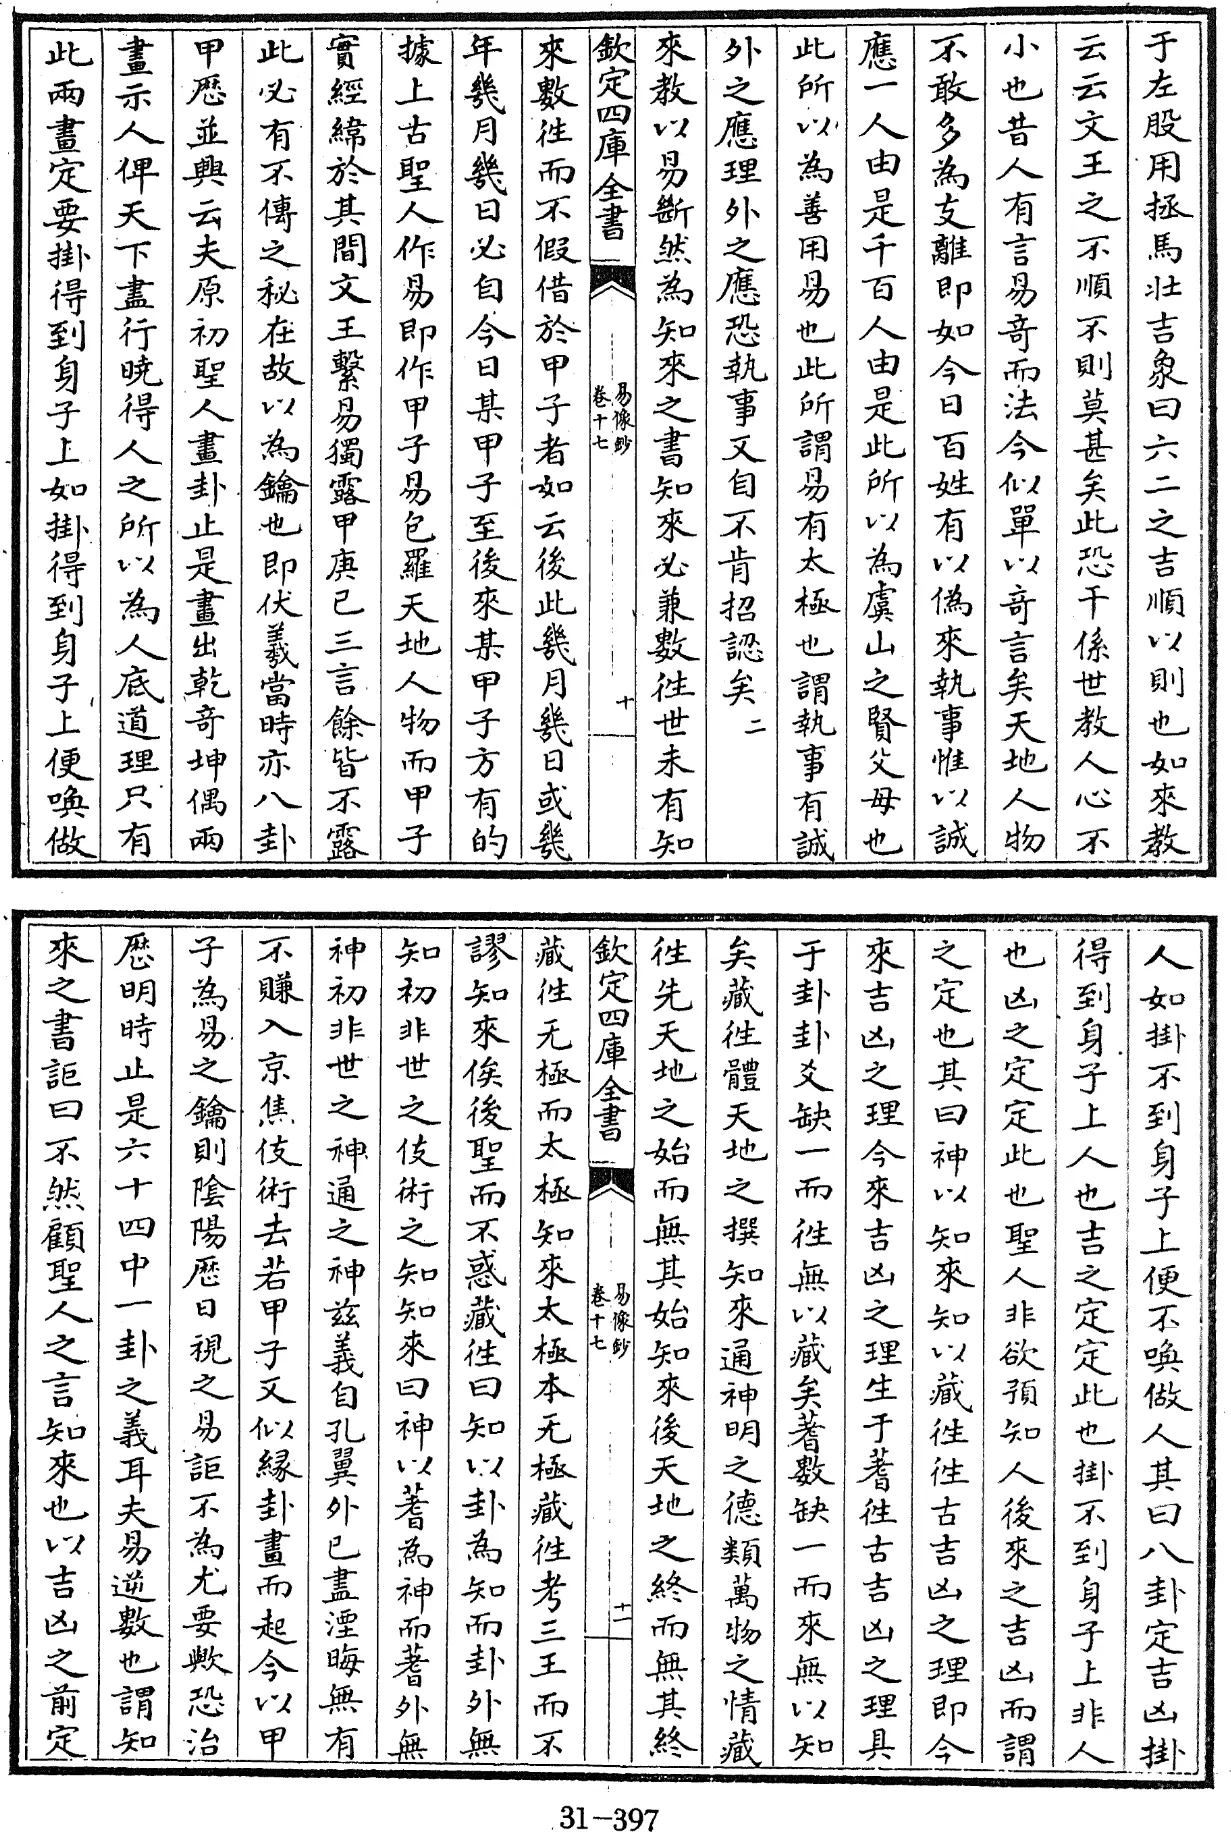 于左股用拯馬壯吉象曰六二之吉順以則也如來教
云云文王之不順不則莫甚矣此恐干係世教人心不
小也昔人有言易奇而法今似單以奇言矣天地人物
不敢多為支離即如今日百姓有以偽來執事惟以誠
應一人由是千百人由是此所以為虞山之賢父母也
此所以為善用易也此所謂易有太極也謂執事有誠
外之應理外之應恐執事又自不肯招認矣 二
來教以易斷然為知來之書知來必兼數徃世未有知
欽定四庫全書
易像鈔
卷十七
十
來數徃而不假借於甲子者如云後此幾月幾日或幾
年幾月幾日必自今日某甲子至後來某甲子方有的
據上古聖人作易即作甲子易包羅天地人物而甲子
實經緯於其間文王繫易獨露甲庚己三言餘皆不露
此必有不傳之秘在故以為鑰也即伏羲當時亦八卦
甲歴並興云夫原初聖人畫卦止是畫出乾奇坤偶兩
畫示人俾天下盡行曉得人之所以為人底道理只有
此兩畫定要掛得到身子上如掛得到身子上便喚做
人如掛不到身子上便不喚做人其曰八卦定吉凶掛
得到身子上人也吉之定定此也掛不到身子上非人
也凶之定定此也聖人非欲預知人後來之吉凶而謂
之定也其曰神以知來知以藏徃徃古吉凶之理即今
來吉凶之理今來吉凶之理生于蓍徃古吉凶之理具
于卦卦爻缺一而徃無以藏矣蓍數缺一而來無以知
矣藏徃體天地之撰知來通神明之德類萬物之情藏
徃先天地之始而無其始知來後天地之終而無其終
欽定四庫全書
易像鈔
卷十七
十一
藏徃无極而太極知來太極本无極藏徃考三王而不
謬知來俟後聖而不惑藏徃曰知以卦為知而卦外無
知初非世之伎術之知知來曰神以蓍為神而蓍外無
神初非世之神通之神兹義自孔翼外已盡湮晦無有
不賺入京焦伎術去若甲子又似緣卦畫而起今以甲
子為易之鑰則陰陽歴日視之易詎不為尤要歟恐治
歴明時止是六十四中一卦之義耳夫易逆數也謂知
來之書詎曰不然顧聖人之言知來也以吉凶之前定
31-397